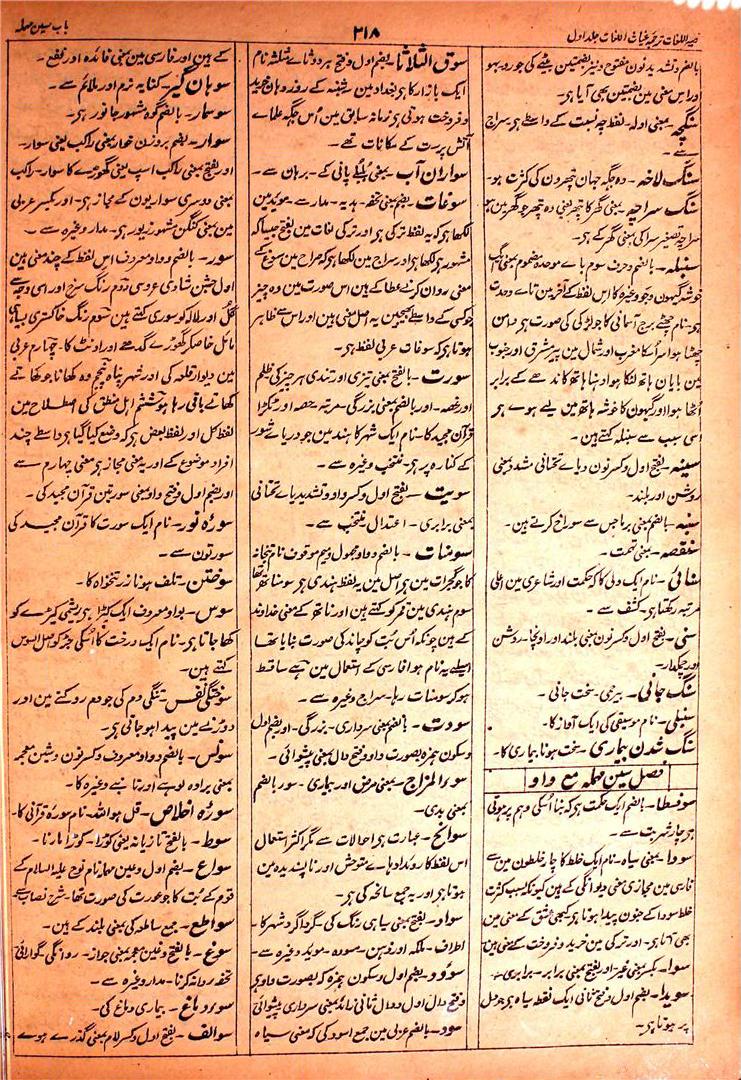 باب سین مہملہ
۳۱۸
نصیر اللغات ترجمہ غیاث اللغات جلد اول
بالضم وتشدید نون مفتوح ونیز بضمتین بیٹے کی جورو بہو
اور اس معنی مین بضمتین بھی آیا ہی۔
سنگچہ۔ بمعنی اولہ۔ لفظ چہ نسبت کے واسطے ہی سراج
سے۔
سنگ لاخہ۔ وہ جگہ جہان پتھرون کی کثرت ہو۔
سنگ سراچہ۔ بمعنی گھر کا پتھر یعنی وہ پتھر جو گھر مین ہو
سراچہ تصغیر سرا کی بمعنی گھر کے ہی۔
سنبلہ۔ بالضم وحرف سوم باے موحدہ مضموم بمعنی ایک
خوشہ گیہون وجو وغیرہ کا اس لفظ کے آخر مین تاے وحدت
ہو۔ نام چھٹے برج آسمانی کا جو لڑکی کی صورت ہی دامن
چھٹا ہوا سر اسکا مغرب اور شمال مین پیر مشرق اور جنوب
مین بایان ہاتھ لٹکا ہوا دہنا ہاتھ کاندھے کے برابر
اُٹھا ہوا اور گیہون کا خوشہ ہاتھ مین لیے ہوے ہی
اسی سبب سے سنبلہ کہتے ہین۔
سنیہ۔ بفتح اول وکسر نون ویاے تحتانی مشدد بمعنی
روشن اور بلند۔
سنبہ۔ بالضم بمعنی برما جس سے سوراخ کرتے ہین۔
منقصہ۔ بمعنی تہمت۔
سنائی۔ نام ایک ولی کا کہ حکمت اور شاعری مین اعلی
مرتبہ رکھتا ہی۔ کشف سے۔
سنی۔ بفتح اول وکسر نون بمعنی بلند اور اونچا۔ روشن
اور چمکدار۔
سنگ جانی۔ بیرحمی۔ سخت جانی۔
سنبلی۔ نام موسیقی کی ایک آواز کا۔
سنگ شدن بیماری۔ سخت ہونا بیماری کا۔
فصل سین مہملہ مع واو
سوفسطا۔ بالضم ایک حکمت ہی کہ بنا اسکی وہم پر ہوتی
ہی چار شربت سے۔
سودا۔ بمعنی سیاہ۔ نام ایک خلط کا چار خلطون مین سے
فارسی مین مجازی معنی دیوانگی کے ہین کیونکہ بسبب کثرت
خلط سودا کے جنون پیدا ہوتا ہی کبھی عشق کے معنی مین
بھی آتا ہی۔ اور ترکی مین خرید و فروخت کے معنی ہین
سوا۔ بکسر بمعنی غیر۔ اور بفتح بمعنی برابر۔ برابری۔
سویدا۔ بضم اول وفتح ثانی ایک نقطہ سیاہ ہی جو دل
پر ہوتا ہی۔
سوق الثلاثا۔ بضم اول وفتح ہر دو ثاے مثلثہ نام
ایک بازار کا ہی بغداد مین سہ شنبہ کے روز وہان خرید
و فروخت ہوتی ہی زمانہ سابق مین اُس جگہ علماے
آتش پرست کے مکانات تھے۔
سواران آب۔ بمعنی بُلبُلے پانی کے۔ برہان سے۔
سوغات۔ بضم بمعنی تحفہ۔ ہدیہ۔ مدار سے۔ موید مین
لکھا ہی کہ یہ لفظ ترکی ہی اور ترکی لغات مین بفتح جیسا کہ
مشہور ہی لکھا ہی اور سراج مین لکھا ہی کہ صراح مین سوغ کے
معنی روان کرنے عطا کے ہین اس صورت مین وہ چیز
جو کسی کے واسطے بھیجین یہ اصل معنی ہین اور اس سے ظاہر
ہوتا ہی کہ سوغات عربی لفظ ہی۔
سورت۔ بالفتح بمعنی تیزی اور تندی ہر چیز کی ظلم
اور غصہ۔ اور بالضم بمعنی بزرگی۔ مرتبہ۔ حصہ اور ٹکڑا
قرآن مجید کا۔ نام ایک شہر کا ہند مین جو دریاے شور
کے کنارہ پر ہی۔ منتخب وغیرہ سے۔
سویت۔ بفتح اول وکسر واو وتشدید یاے تحتانی
بمعنی برابری۔ اعتدال منتخب سے۔
سومنات۔ بالضم وواو مجہول ومیم موقوف نام بتخانہ
کا جو گجرات مین ہی اصل مین یہ لفظ ہندی ہی سومناتھ تھا
سوم ہندی مین قمر کو کہتے ہین اور ناتھ کے معنی خداوند
کے ہین چونکہ اُس بُت کو چاند کی صورت بنایا تھا
اسیلیے یہ نام ہوا فارسی کے استعمال مین ہے ساقط
ہو کر سومنات رہا۔ سراج وغیرہ سے۔
سودت۔ بالضم بمعنی سرداری۔ بزرگی۔ اور بضم اول
وسکون ہمزہ بصورت واو وفتح دال بمعنی پیشوائی۔
سوءالمزاج۔ بمعنی مرض اور بیماری۔ سوء بالضم
بمعنی بدی۔
سوانح۔ عبارت ہی احالات سے مگر اکثر استعمال
اس لفظ کا روبداد ہاے متوحش اور ناپسندیدہ مین
ہوتا ہی اور یہ جمع سانحہ کی ہی۔
سواد۔ بفتح بمعنی سیاہی رنگ کی۔ گرداگرد شہر کا۔
اطراف۔ ملکہ اور ذہن۔ مسودہ۔ موید وغیرہ سے۔
سوٴدد۔ بضم اول وسکون ہمزہ کہ بصورت واو ہی
وفتح دال اول ودال ثانی زائد بمعنی سرداری پیشوائی
سود۔ بالضم عربی مین جمع اسود کی کہ معنی سیاہ
کے ہین اور فارسی مین بمعنی فائدہ اور نفع۔
سوہان گیر۔ کنایہ نرم اور ملائم سے۔
سوسمار۔ بالضم گوہ مشہور جانور ہی۔
سوار۔ بضم بروزن خمار بمعنی راکب یعنی سوار۔
اور بفتح بمعنی راکب اسپ یعنی گھوڑے کا سوار۔ راکب
بمعنی دوسری سواریون کے مجاز ہی۔ اور بکسر عربی
مین بمعنی کنگن مشہور زیور ہی۔ مدار وغیرہ سے۔
سور۔ بالضم وواو معروف اس لفظ کے چند معنی ہین
اول جشن شادی عروسی دوم رنگ سرخ اور اسی وجہ سے
گل اور لالہ کو سوری کہتے ہین سوم رنگ خاکستری سیاہی
مائل خاصکر گھوڑے گدھے اور اونٹ کا۔ چہارم عربی
مین دیوار قلعہ کی اور شہر پناہ پنجم وہ کھانا جو کھاتے
کھاتے باقی رہا ہو ششم اہل منطق کی اصطلاح مین
لفظ کل اور لفظ بعض ہی کہ وضع کیا گیا ہی واسطے چند
افراد موضوع کے اور یہ معنی مجاز ہی معنی چہارم سے
اور بضم اول وفتح واو بمعنی سورتین قرآن مجید کی۔
سورہ نور۔ نام ایک سورت کا قرآن مجید کی
سورتون سے۔
سوختن۔ تلف ہونا زر تنخواہ کا۔
سوس۔ بواو معروف ایک کیڑا ہی ریشمی کپڑے کو
کھا جاتا ہی۔ نام ایک درخت کا اُسکی جڑ کو اصل السوس
کہتے ہین۔
سوختگی نفس۔ تنگی دم کی جو دم روکنے مین اور
دوڑنے مین پیدا ہو جاتی ہی۔
سونش۔ بالضم وواو معروف وکسر نون وشین معجمہ
بمعنی برادہ لوہے اور تانبے وغیرہ کا۔
سورہ اخلاص۔ قل ہو اللہ۔ نام سورہ قرآنی کا۔
سوط۔ بالفتح تازیانہ یعنی کوڑا۔ کوڑا مارنا۔
سواع۔ بضم اول وعین مہملہ نام نوح علیہ السلام کے
قوم کے بُت کا جو عورت کی صورت تھا۔ شرح نصاب سے
سواطع۔ جمع ساطعہ کی بمعنی بلند کے ہین۔
سوغ۔ بالفتح وغین معجمہ بمعنی جواز۔ روانگی۔ گوارائی
تحفہ روانہ کرنا۔ مدار وغیرہ سے۔
سوء دماغ۔ بیماری دماغ کی۔
سوالف۔ بفتح اول وکسر لام بمعنی گذرے ہوے